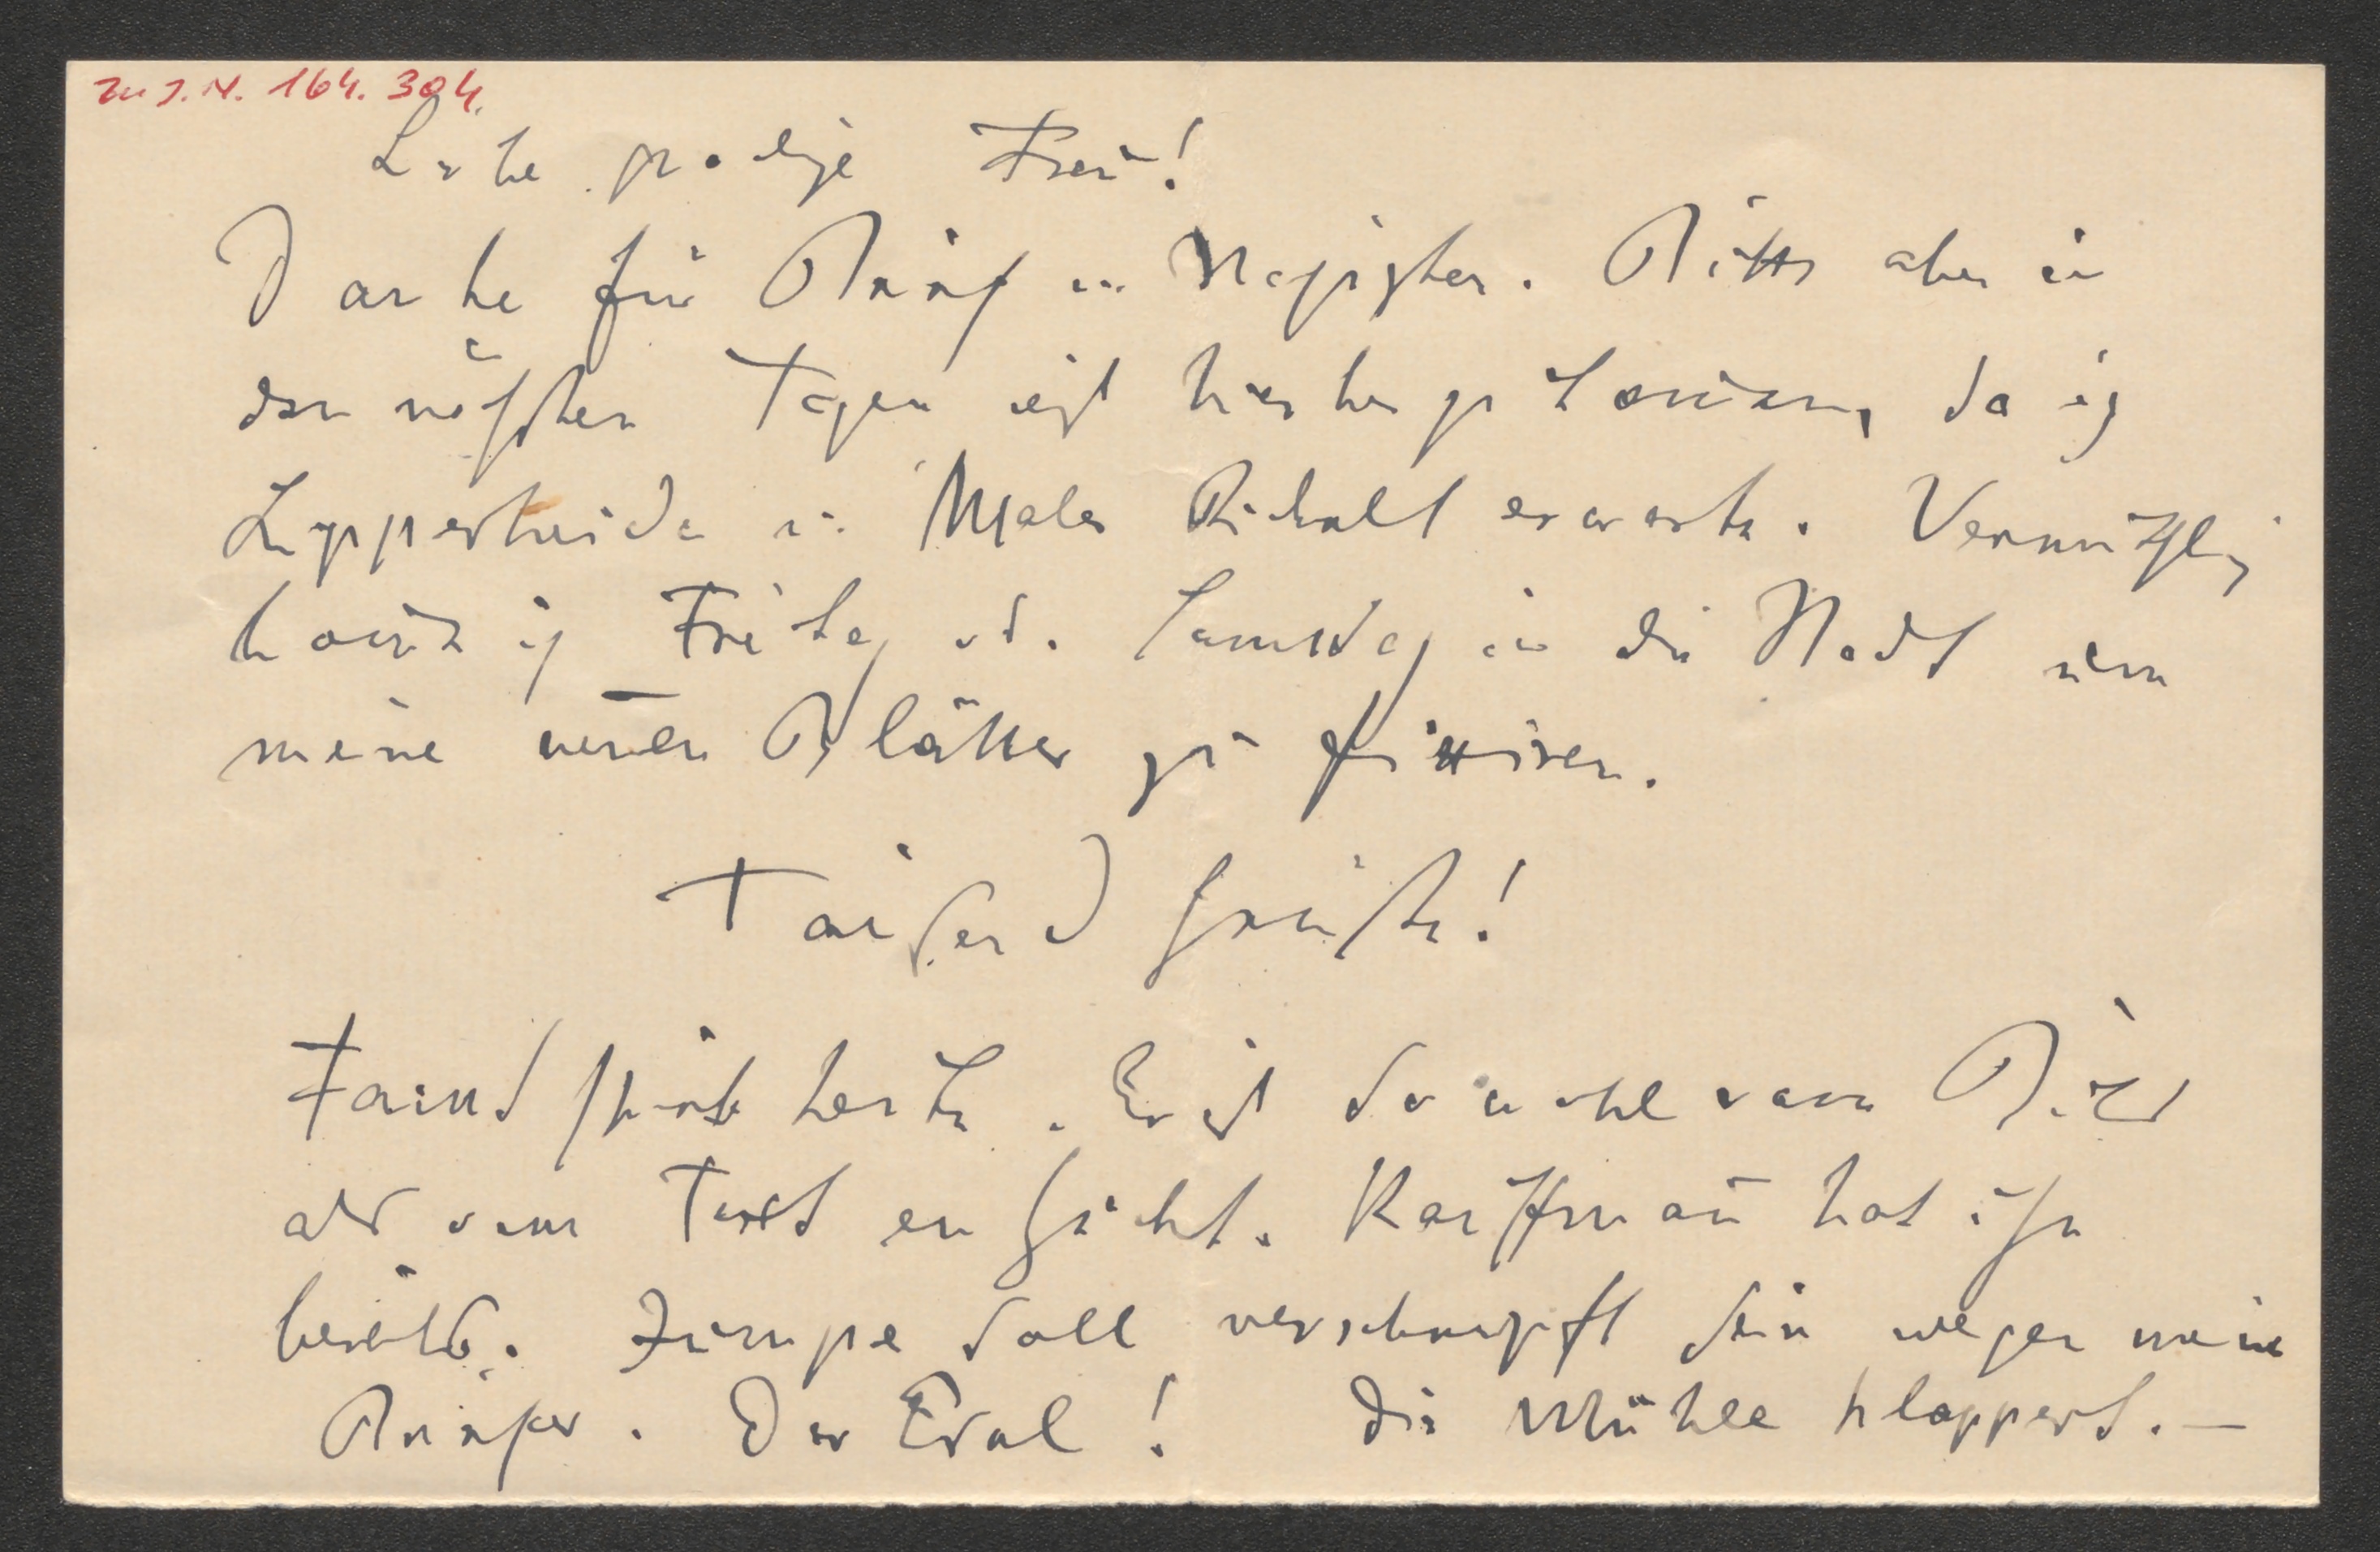 zu J.N. 164.304.
Liebe gnädige Frau!
Danke für Brief u. Bitte aber in
den nächsten Tagen nicht hierher zu kommen, da ich
Lipperheide u. Maler erwarte. Vermuthlich
komme ich Freitag od. Samstag in die Stadt um
meine neuen Blätter zu fixiren.
Tausend Grüße!
schrieb heute. Er ist sowohl vom Bild
als vom Text entzückt. Kauffmañ hat ihn
Zumpe soll verschnupft sein wegen meine
Briefes. Der Esel! Die Mühle klappert. —